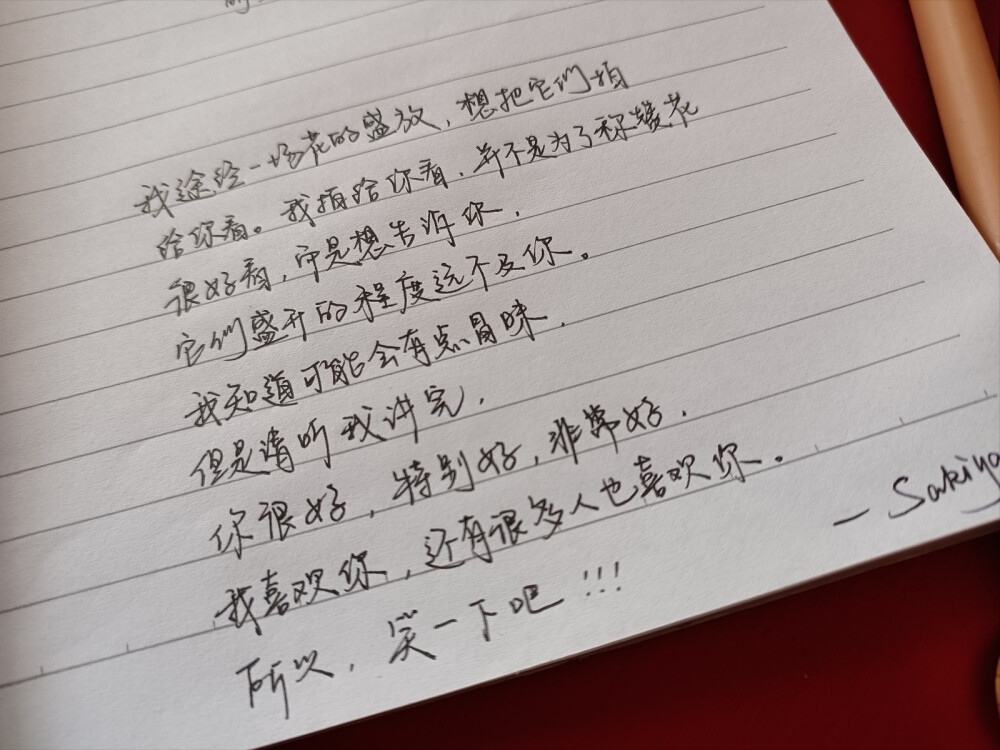 我途经一场花的盛放，想把它们拍
给你看。我拍给你看，并不是为了称赞花
很好看，而是想告诉你，
它们盛开的程度远不及你。
我知道可能会有点冒昧，
但是请听我讲完，
你很好，特别好，非常好，
我喜欢你，还有很多人也喜欢你。
— Sakiya
所以，笑一下吧!!!